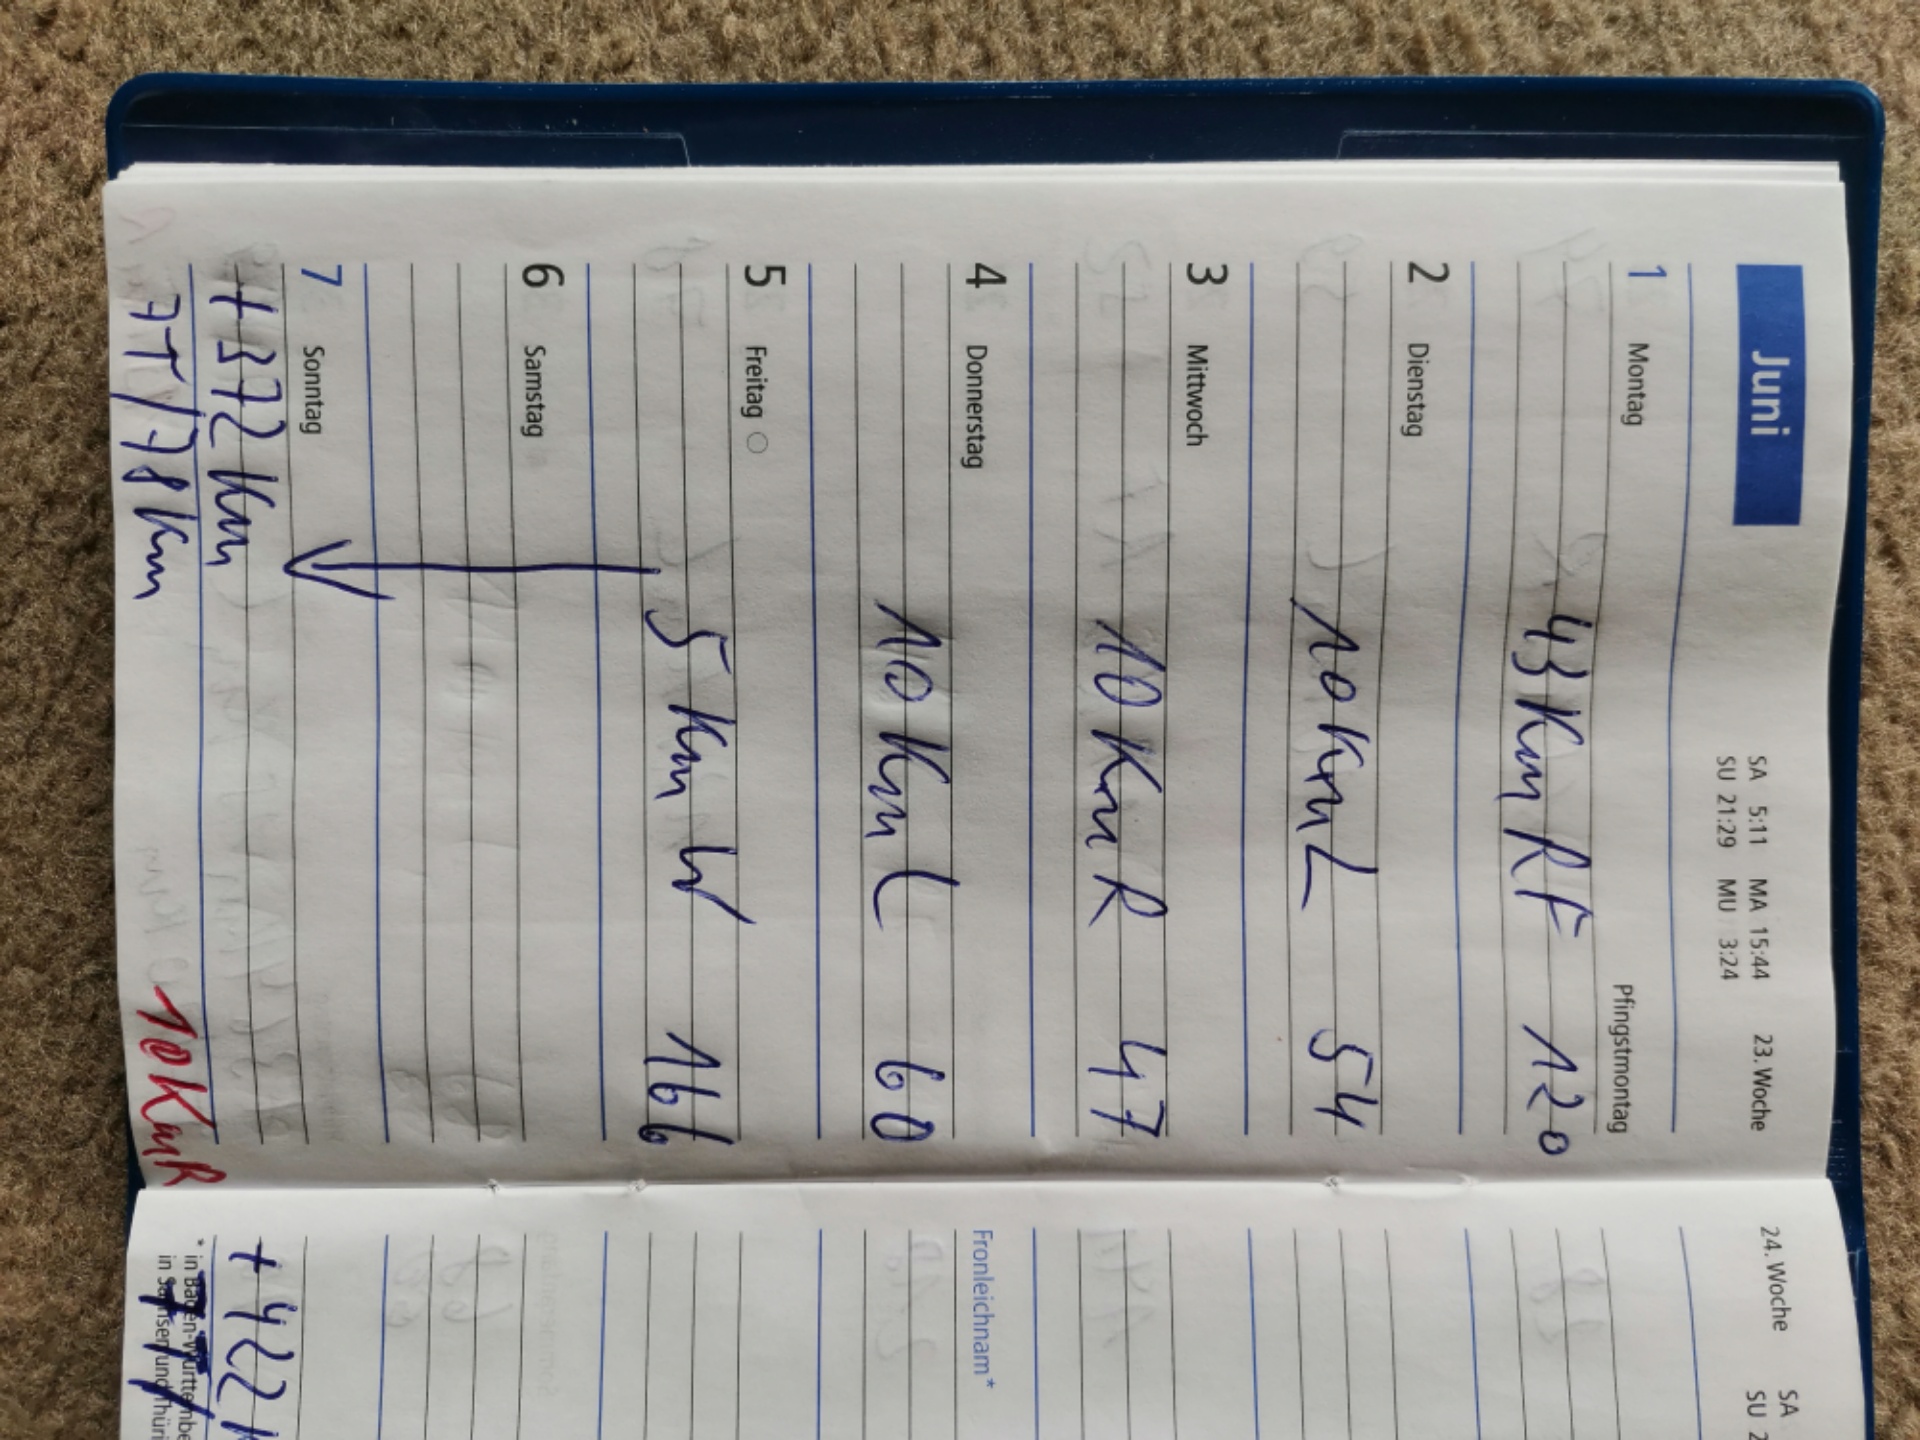 Juni
SA 5:11 MA 15:44 23. Woche
SU 21:29 MU 3:24
1 Montag Pfingstmontag
43 Km RF 120
2 Dienstag
10 Km L 54
3 Mittwoch
10 Km R 47
4 Donnerstag
10 Km L 60
5 Freitag
5 Km W 166
6 Samstag
7 Sonntag
+372 Km
7T/78 Km
10 Km R
24. Woche SA
SU 2
Fronleichnam*
+422
* in Baden-Württembe
in Sachsen und Thüri